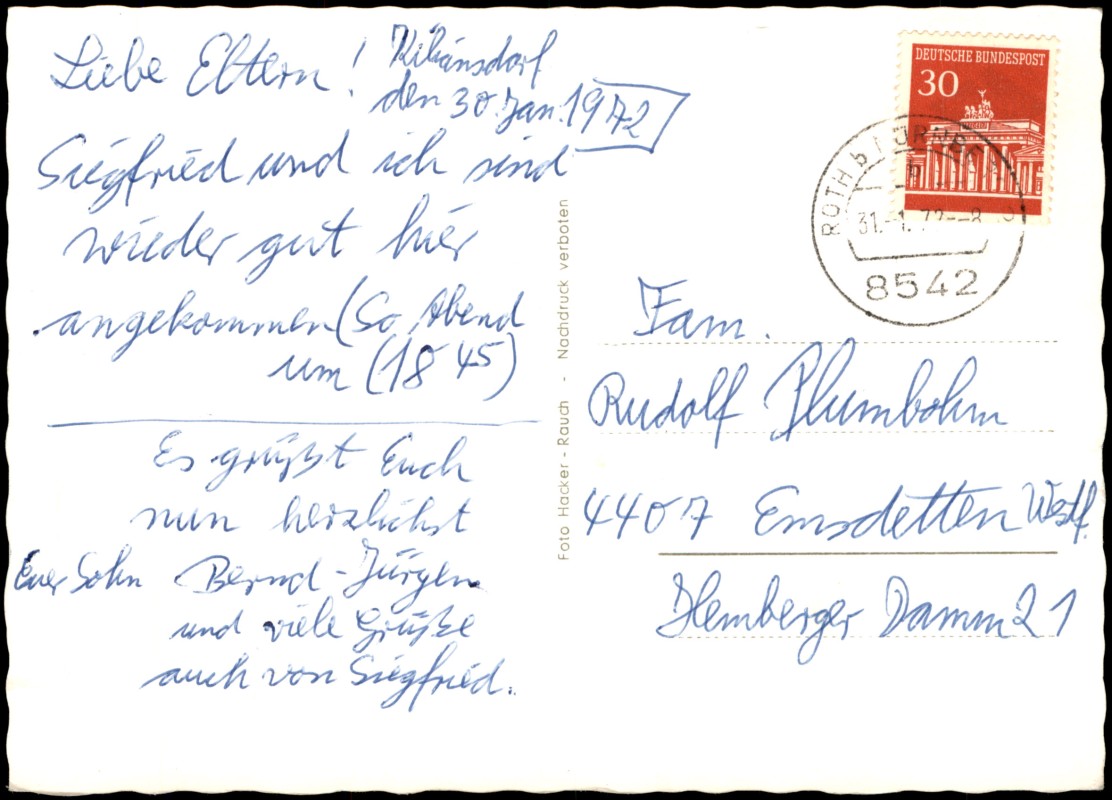 Liebe Eltern! Kiliansdorf
den 30. Jan. 1972
Siegfried und ich sind
wieder gut hier
angekommen (So Abend
um (18 45)
Es grüßt Euch
nun herzlichst
Euer Sohn Bernd-Jürgen
und viele Grüße
auch von Siegfried.
Foto Hacker - Rauch - Nachdruck verboten
DEUTSCHE BUNDESPOST
30
ROTH b NÜRNBERG
b
31.-1.72--8
8542
Fam.
Rudolf Plumbohm
4407 Emsdetten Westf.
Hemberger Damm 21